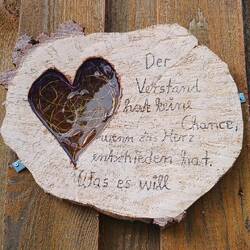 Der
Verstand
hat keine
Chance,
wenn das Herz
entschieden hat.
Was es will